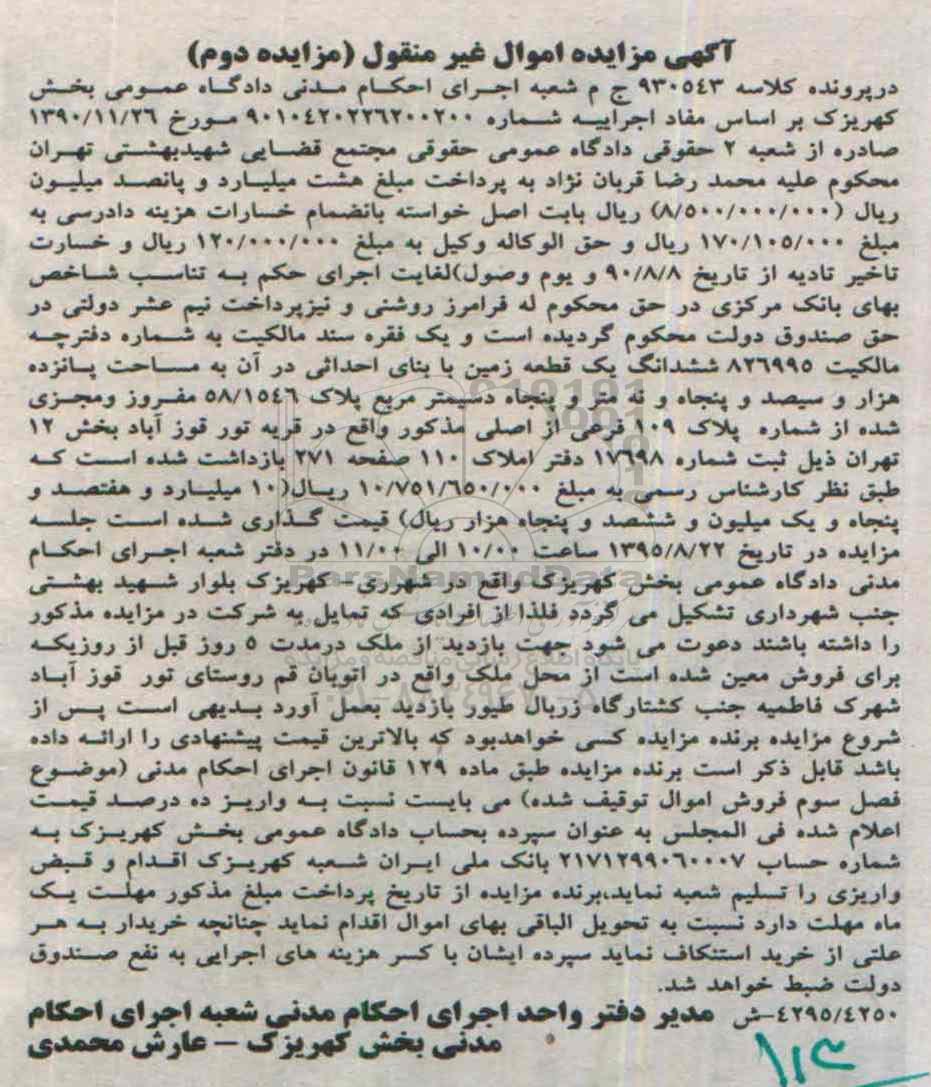 آگهی مزایده اموال غیر منقول (مزایده دوم)
درپرونده کلاسه ۹۳۰۵۴۳ ج م شعبه اجرای احکام مدنی دادگاه عمومی بخش
کهریزک بر اساس مفاد اجراییه شماره ۹۰۱۰۴۲۰۲۲۶۲۰۰۲۰۰ مورخ ۱۳۹۰/۱۱/۲۶
صادره از شعبه ۲ حقوقی دادگاه عمومی حقوقی مجتمع قضایی شهیدبهشتی تهران
محکوم علیه محمد رضا قربان نژاد به پرداخت مبلغ هشت میلیارد و پانصد میلیون
ریال (۸/۵۰۰/۰۰۰/۰۰۰) ریال بابت اصل خواسته بانضمام خسارات هزینه دادرسی به
مبلغ ۱۷۰/۱۰۵/۰۰۰ ریال و حق الوکاله وکیل به مبلغ ۱۲۰/۰۰۰/۰۰۰ ریال و خسارت
تاخیر تادیه از تاریخ ۹۰/۸/۸ و یوم وصول)لغایت اجرای حکم به تناسب شاخص
بهای بانک مرکزی در حق محکوم له فرامرز روشنی و نیزپرداخت نیم عشر دولتی در
حق صندوق دولت محکوم گردیده است و یک فقره سند مالکیت به شماره دفترچه
مالکیت ۸۲۶۹۹۵ ششدانگ یک قطعه زمین با بنای احداثی در آن به مساحت پانزده
هزار و سیصد و پنجاه و نه متر و پنجاه دسیمتر مربع پلاک ۵۸/۱۵۴۶ مفروز ومجزی
شده از شماره پلاک ۱۰۹ فرعی از اصلی مذکور واقع در قریه تور قوز آباد بخش ۱۲
تهران ذیل ثبت شماره ۱۷۶۹۸ دفتر املاک ۱۱۰ صفحه ۲۷۱ بازداشت شده است که
طبق نظر کارشناس رسمی به مبلغ ۱۰/۷۵۱/۶۵۰/۰۰۰ ریال(۱۰ میلیارد و هفتصد و
پنجاه و یک میلیون و ششصد و پنجاه هزار ریال) قیمت گذاری شده است جلسه
مزایده در تاریخ ۱۳۹۵/۸/۲۲ ساعت ۱۰/۰۰ الی ۱۱/۰۰ در دفتر شعبه اجرای احکام
مدنی دادگاه عمومی بخش کهریزک واقع در شهرری- کهریزک بلوار شهید بهشتی
جنب شهرداری تشکیل می گردد فلذا از افرادی که تمایل به شرکت در مزایده مذکور
را داشته باشند دعوت می شود جهت بازدید از ملک درمدت ۵ روز قبل از روزیکه
برای فروش معین شده است از محل ملک واقع در اتوبان قم روستای تور قوز آباد
شهرک فاطمیه جنب کشتارگاه زربال طیور بازدید بعمل آورد بدیهی است پس از
شروع مزایده برنده مزایده کسی خواهدبود که بالاترین قیمت پیشنهادی را ارائه داده
باشد قابل ذکر است برنده مزایده طبق ماده ۱۲۹ قانون اجرای احکام مدنی (موضوع
فصل سوم فروش اموال توقیف شده) می بایست نسبت به واریز ده درصد قیمت
اعلام شده فی المجلس به عنوان سپرده بحساب دادگاه عمومی بخش کهریزک به
شماره حساب ۲۱۷۱۲۹۹۰۶۰۰۰۷ بانک ملی ایران شعبه کهریزک اقدام و قبض
واریزی را تسلیم شعبه نماید،برنده مزایده از تاریخ پرداخت مبلغ مذکور مهلت یک
ماه مهلت دارد نسبت به تحویل الباقی بهای اموال اقدام نماید چنانچه خریدار به هر
علتی از خرید استنکاف نماید سپرده ایشان با کسر هزینه های اجرایی به نفع صندوق
دولت ضبط خواهد شد.
۴۲۹۵/۴۲۵۰-ش مدیر دفتر واحد اجرای احکام مدنی شعبه اجرای احکام
مدنی بخش کهریزک – عارش محمدی
ParsNamadData
۱۱۳